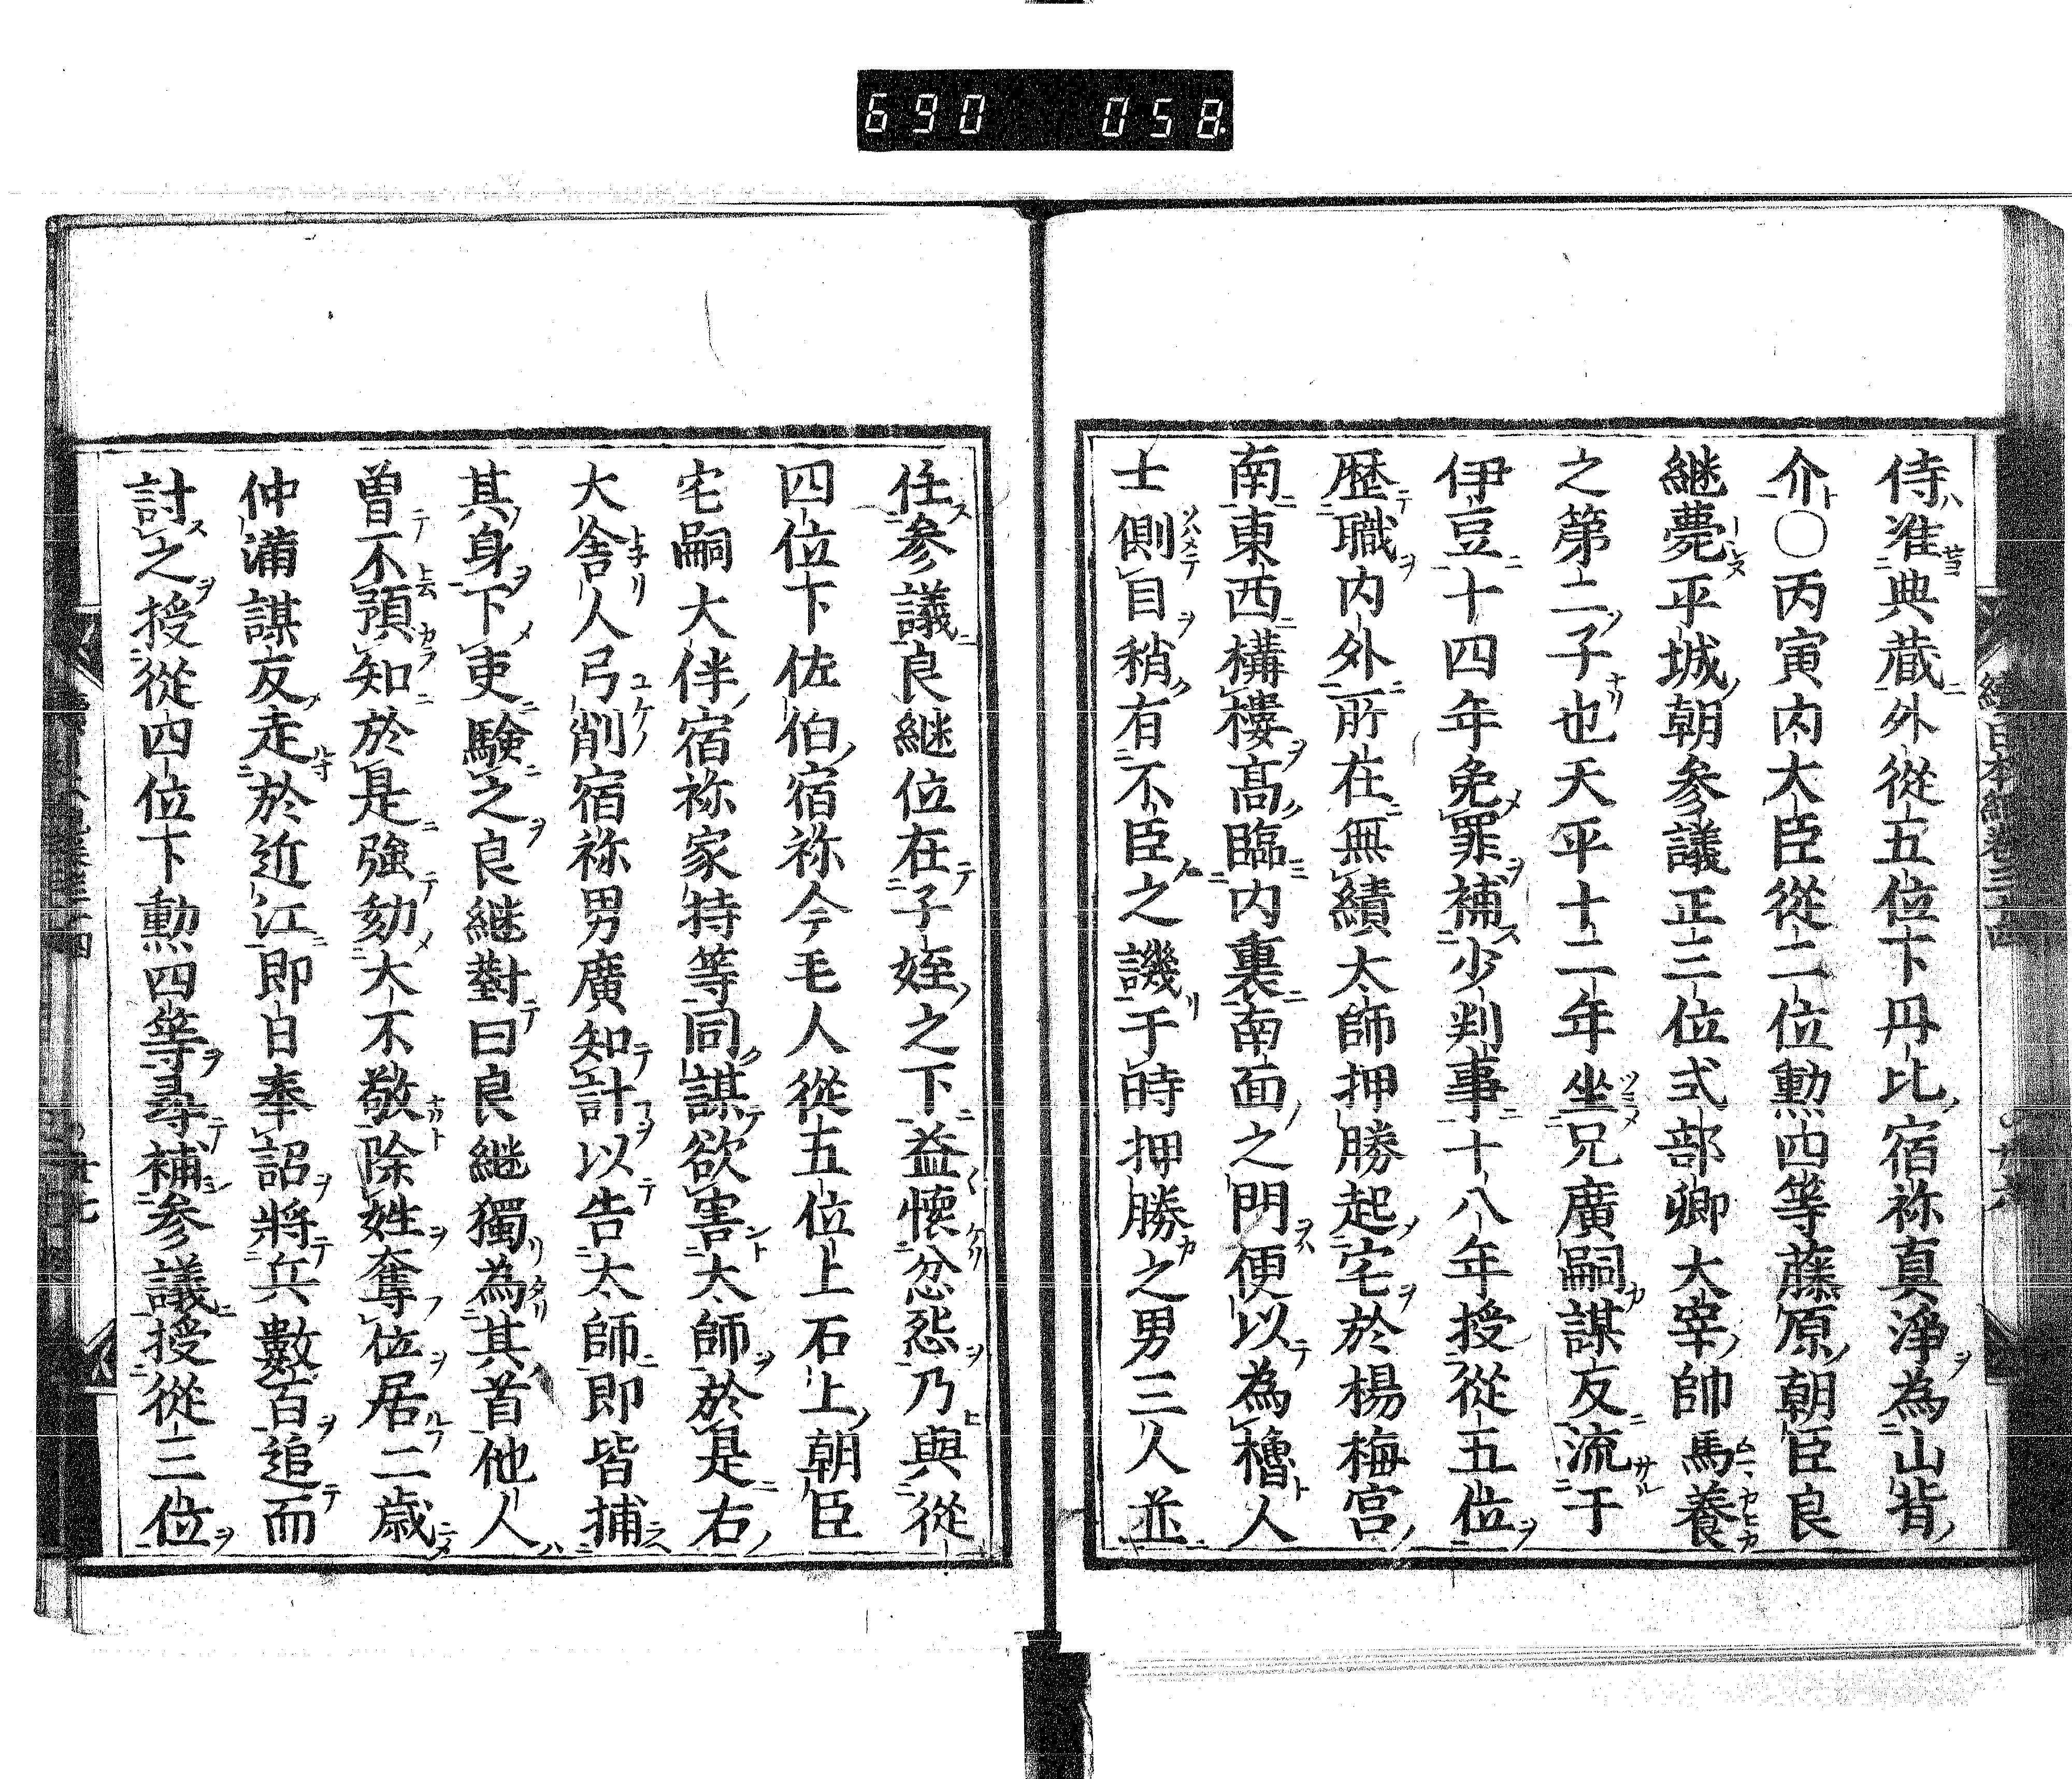 690 058
侍准典蔵外從五位下丹比宿祢真淨為山背
介〇丙寅内大臣從二位勲四等藤原朝臣良
継薨平城朝参議正三位式部卿大宰帥馬養
之第二子也天平十二年坐兄廣嗣謀反流于
伊豆十四年免罪補少判事十八年授從五位
歴職内外所在無績太師押勝起宅於楊梅宮
南東西構樓髙臨内裏南面之門便以為櫓人
士側目稍有不臣之譏于時押勝之男三人並
任参議良継位在子姪之下益懐忿怨乃與從
四位下佐伯宿祢今毛人從五位上石上朝臣
宅嗣大伴宿祢家持等同謀欲害太師於是右
大舎人弓削宿祢男廣知計以告太師即皆捕
其身下吏験之良継對曰良継獨為其首他人
曽不預知於是強劾大不敬除姓奪位居二歳
仲満謀反走於近江即日奉詔將兵數百追而
討之授從四位下勲四等尋補参議授從三位